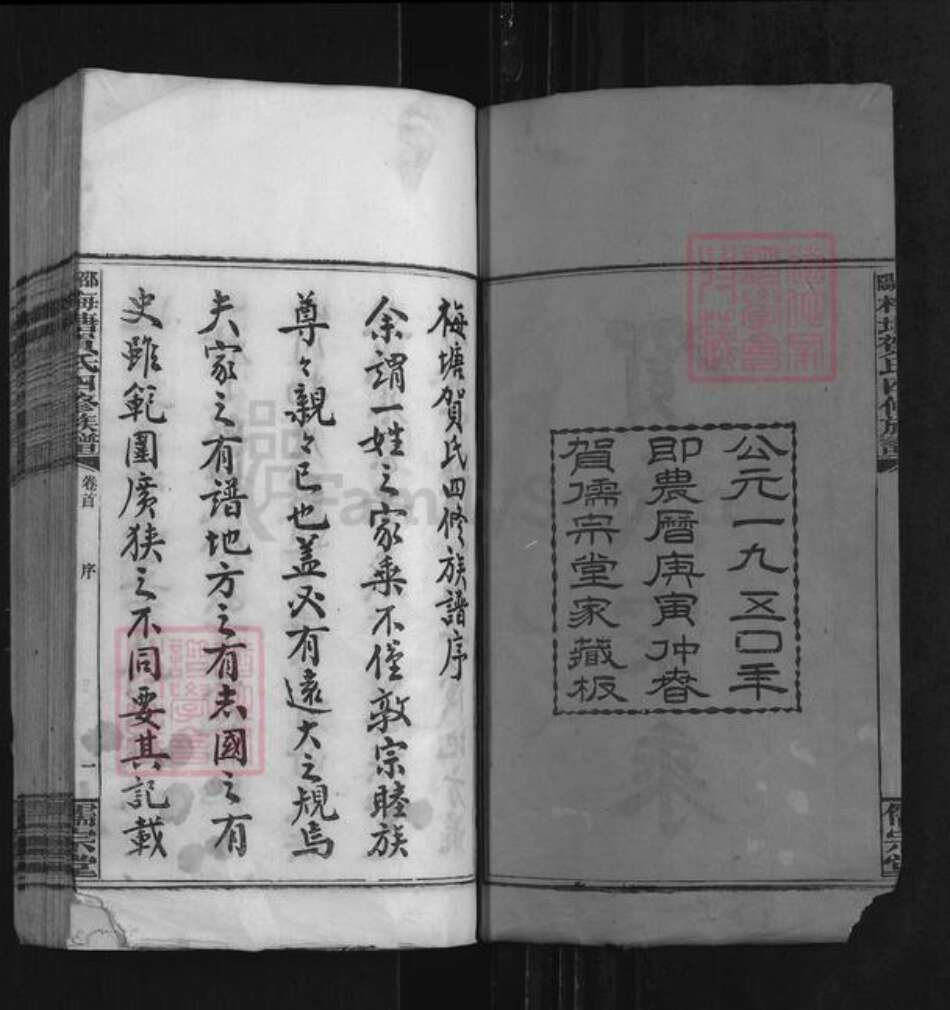 公元一九五〇年
即農曆庚寅仲春
賀儒宗堂家藏板
梅塘賀氏四修族譜序
余謂一姓之家乘不僅敦宗睦族
尊々親々已也蓋必有遠大之規焉
夫家之有譜地方之有志國之有
史雖範圍廣狹之不同要其記載
梅塘賀氏四修族譜
卷首
序
一
儒宗堂